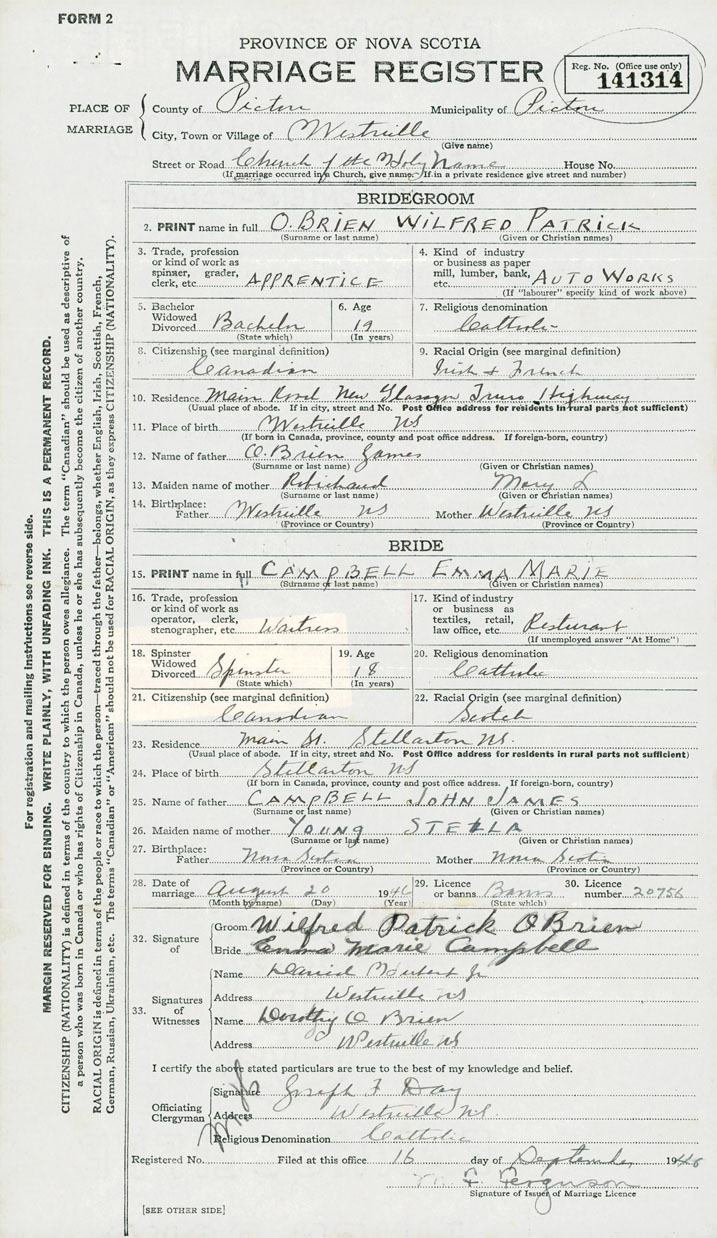 FORM 2
PROVINCE OF NOVA SCOTIA
MARRIAGE REGISTER
Reg. No. (Office use only)
141314
PLACE OF MARRIAGE
County of Picton Municipality of Picton
City, Town or Village of Westville
(Give name)
Street or Road Church of the Holy Name House No.
(If marriage occurred in a Church, give name. If in a private residence give street and number)
BRIDEGROOM
2. PRINT name in full O.BRIEN WILFRED PATRICK
(Surname or last name) (Given or Christian names)
3. Trade, profession
or kind of work as
spinner, grader,
clerk, etc. APPRENTICE
4. Kind of industry
or business as paper
mill, lumber, bank,
etc. AUTO WORKS
(If "labourer" specify kind of work above)
5. Bachelor
Widowed
Divorced Bachelor
(State which)
6. Age
19
(In years)
7. Religious denomination
Catholic
8. Citizenship (see marginal definition)
Canadian
9. Racial Origin (see marginal definition)
Irish + French
10. Residence Main Road New Glasgow Truro Highway
(Usual place of abode. If in city, street and No. Post Office address for residents in rural parts not sufficient)
11. Place of birth Westville NS
(If born in Canada, province, county and post office address. If foreign-born, country)
12. Name of father O.Brien James
(Surname or last name) (Given or Christian names)
13. Maiden name of mother Robichaud Mary L
(Surname or last name) (Given or Christian names)
14. Birthplace:
Father Westville NS Mother Westville NS
(Province or Country) (Province or Country)
BRIDE
15. PRINT name in full CAMPBELL EMMA MARIE
(Surname or last name) (Given or Christian names)
16. Trade, profession
or kind of work as
operator, clerk,
stenographer, etc. Waitress
17. Kind of industry
or business as
textiles, retail,
law office, etc. Resturant
(If unemployed answer "At Home")
18. Spinster
Widowed
Divorced Spinster
(State which)
19. Age
18
(In years)
20. Religious denomination
Catholic
21. Citizenship (see marginal definition)
Canadian
22. Racial Origin (see marginal definition)
Scotch
23. Residence Main St. Stellarton NS.
(Usual place of abode. If in city, street and No. Post Office address for residents in rural parts not sufficient)
24. Place of birth Stellarton NS
(If born in Canada, province, county and post office address. If foreign-born, country)
25. Name of father CAMPBELL JOHN JAMES
(Surname or last name) (Given or Christian names)
26. Maiden name of mother YOUNG STELLA
(Surname or last name) (Given or Christian names)
27. Birthplace:
Father Nova Scotia Mother Nova Scotia
(Province or Country) (Province or Country)
28. Date of
marriage August 20 1946
(Month by name) (Day) (Year)
29. Licence
or banns Banns
(State which)
30. Licence
number 20756
32. Signature of
Groom Wilfred Patrick OBrien
Bride Emma Marie Campbell
33. Signatures of Witnesses
Name Daniel Jr
Address Westville NS
Name Dorothy O Brien
Address Westville NS
I certify the above stated particulars are true to the best of my knowledge and belief.
Officiating Clergyman
Signature Joseph F Day
Address Westville NS.
Religious Denomination Catholic
Registered No. Filed at this office 16 day of September 1946
F. Ferguson
Signature of Issuer of Marriage Licence
[SEE OTHER SIDE]
For registration and mailing instructions see reverse side.
MARGIN RESERVED FOR BINDING. WRITE PLAINLY, WITH UNFADING INK. THIS IS A PERMANENT RECORD.
CITIZENSHIP (NATIONALITY) is defined in terms of the country to which the person owes allegiance. The term "Canadian" should be used as descriptive of
a person who was born in Canada or who has rights of Citizenship in Canada, unless he or she has subsequently become the citizen of another country.
RACIAL ORIGIN is defined in terms of the people or race to which the person—traced through the father—belongs, whether English, Irish, Scottish, French,
German, Russian, Ukrainian, etc. The terms "Canadian" or "American" should not be used for RACIAL ORIGIN, as they express CITIZENSHIP (NATIONALITY).